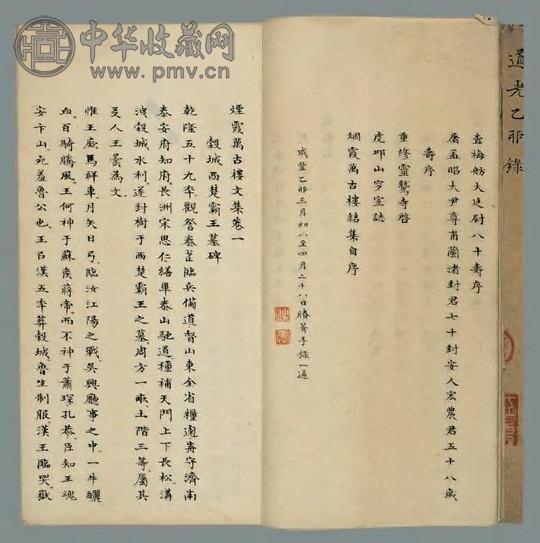 中华收藏网
www.pmv.cn
道光乙卯錄
查梅舫大廷尉八十壽序
屠孟昭大尹尊甫蘭渚封君七十封安人宏農君五十八歲
壽序
重修靈鷲寺啓
虎邱山穸室誌
烟霞萬古樓結集自序
咸豐乙卯三月初八至四月二十八日手錄一通
煙霞萬古樓文集卷一
穀城西楚霸王墓碑
乾隆五十九年觀登泰臨兵備道督山東全省糧道守濟南
泰安府知府長洲宋思仁繕畢泰山馳道種補天門上下長松溝
洩穀城水利遂封樹于西楚霸王之墓周方一畝土階三等屬其
友人王曇爲文
惟王廄馬祥車月矢日弓臨汝江陽之戰吳興廳事之中一牛釃
血百騎騰風王何神于蘇侯蔣帝而不神于蕭琛孔恭臣知王魂
安卞山宛羞魯公也王以漢五年葬穀城魯生制服漢王臨哭嶽